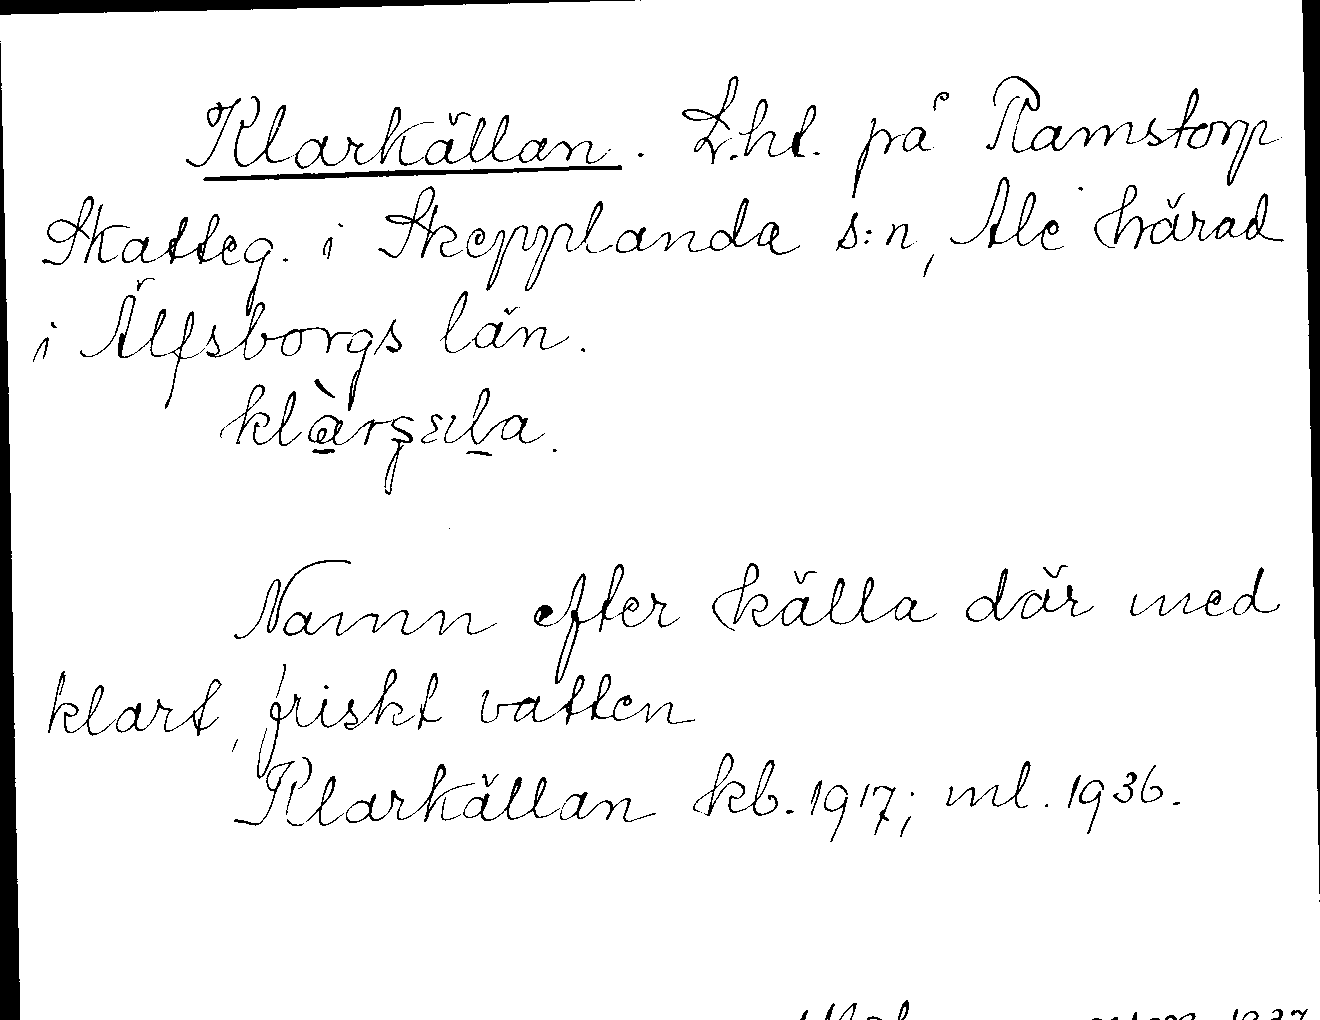 Klarkällan. L.ht. på Ramstorp
Skatteg. i Skepplanda s:n, Ale härad
i Älfsborgs län.
Namn efter källa där med
klart, friskt vatten
Klarkällan kb. 1917; ml. 1936.